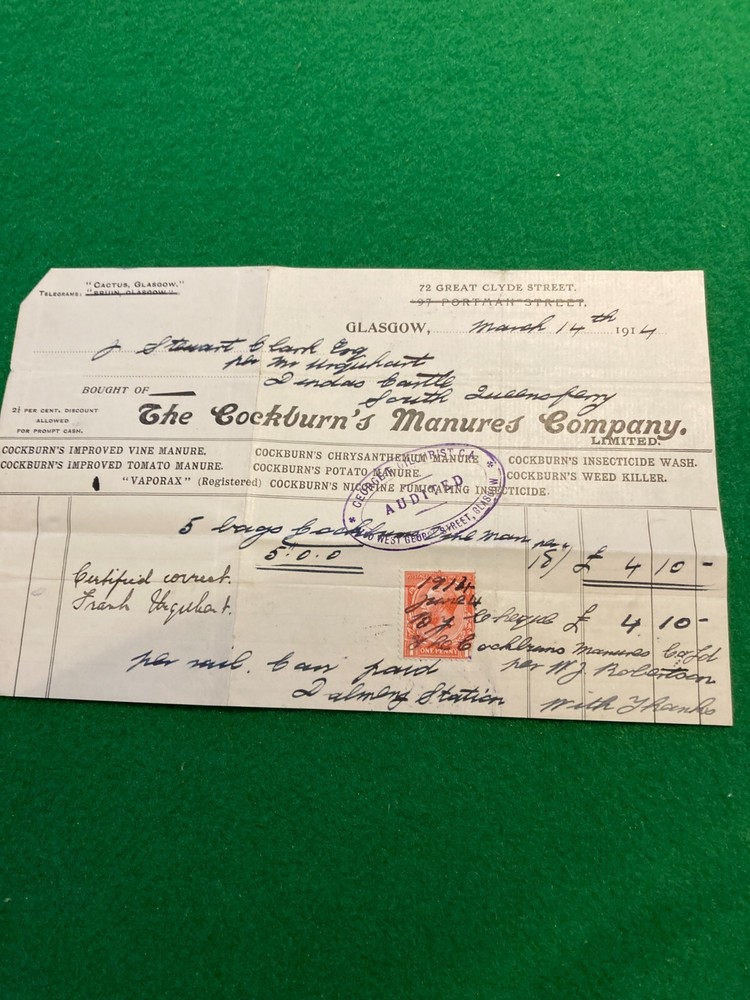 "CACTUS, GLASGOW."
TELEGRAMS: "BRUIN, GLASGOW."
72 GREAT CLYDE STREET,
97 PORTMAN STREET,
GLASGOW, March 14th 1914
J Stewart Clark Esq
per Mr Urquhart
Dundas Castle
South Queensferry
BOUGHT OF
2½ PER CENT. DISCOUNT
ALLOWED
FOR PROMPT CASH.
The Cockburn's Manures Company.
LIMITED.
COCKBURN'S IMPROVED VINE MANURE.
COCKBURN'S IMPROVED TOMATO MANURE.
"VAPORAX" (Registered)
COCKBURN'S CHRYSANTHEMUM MANURE
COCKBURN'S POTATO MANURE.
COCKBURN'S NICOTINE FUMIGATING INSECTICIDE.
COCKBURN'S INSECTICIDE WASH.
COCKBURN'S WEED KILLER.
GILCHRIST, C.A.
AUDITED
WEST GEORGE STREET, GLASGOW
5 bags Cockburns Vine Man 18/ £ 4 10 -
5.0.0
Certified correct.
Frank Urquhart.
1914
June 4
By Cheque £ 4 10 -
Cockburns Manures Co Ld
ONE PENNY
per W J Robertson
per rail. Carr paid
Dalmeny Station
With Thanks